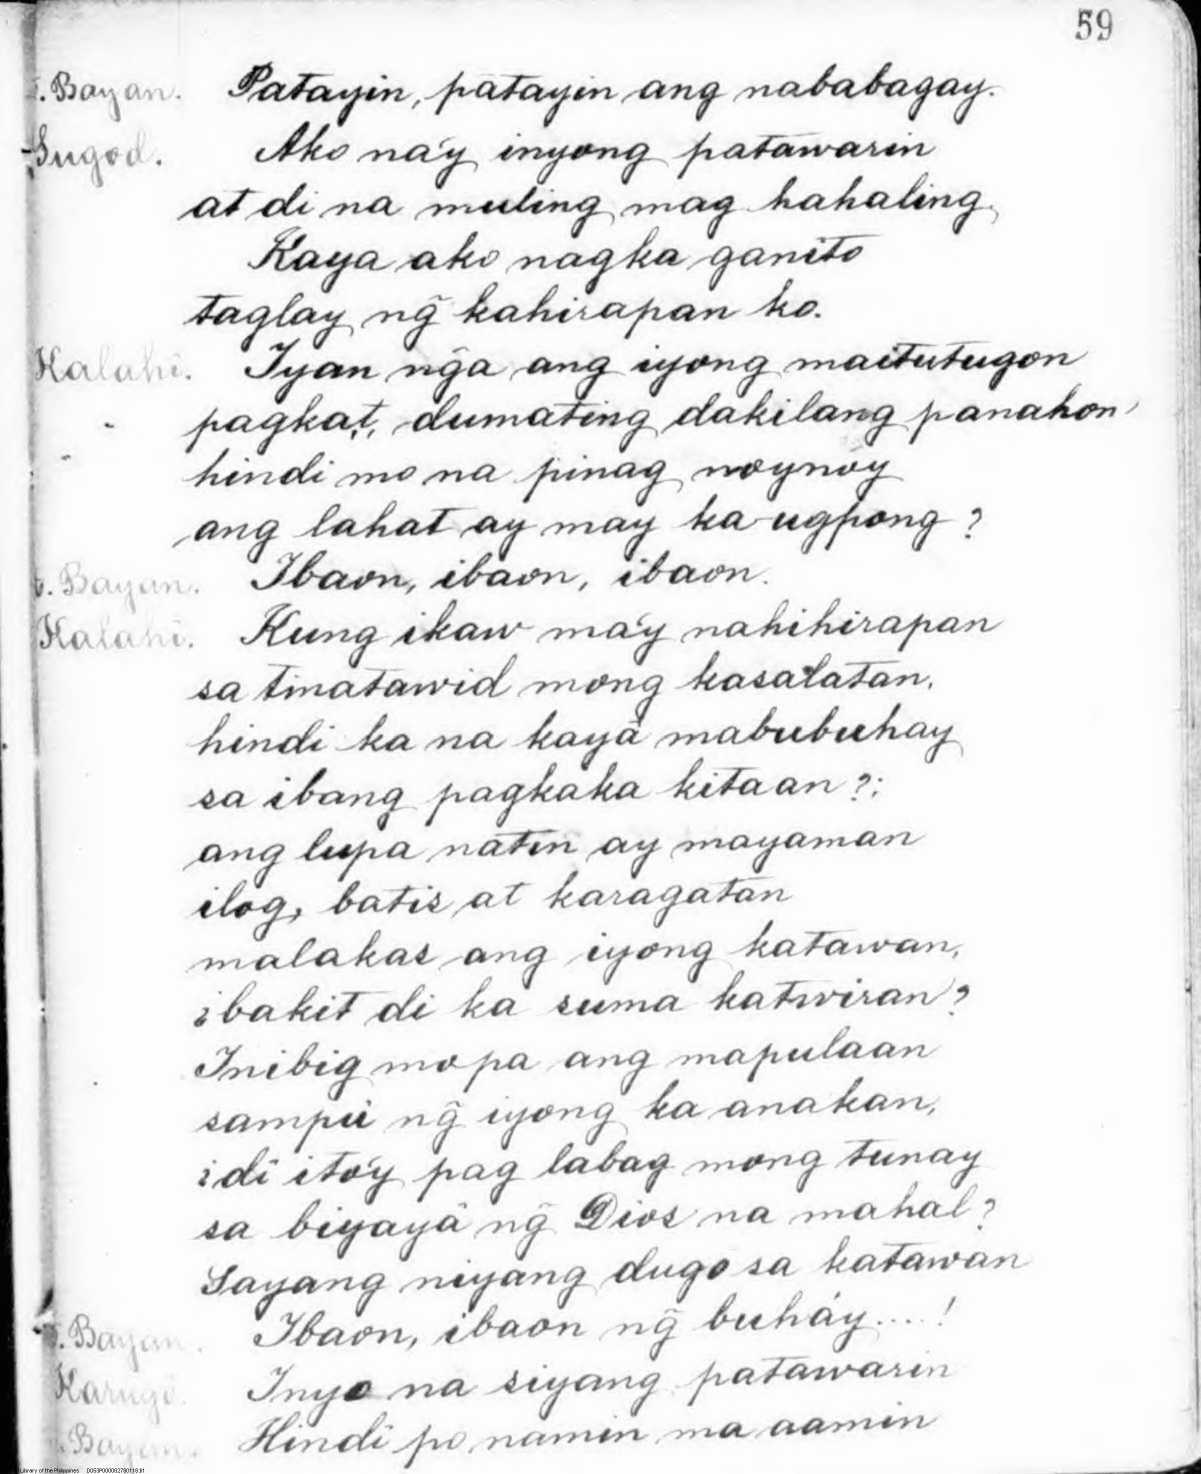 59
. Bayan. Patayin, patayin ang nababagay.
Sugod. Ako na'y inyong patawarin
at di na muling mag hahaling.
Kaya ako nagka ganito
taglay ng̃ kahirapan ko.
Kalahi. Iyan ng̃a ang iyong maitutugon
pagka't, dumating dakilang panahon
hindi mo na pinag noynoy
ang lahat ay may ka-ugpong?
. Bayan. Ibaon, ibaon, ibaon.
Kalahi. Kung ikaw ma'y nahihirapan
sa tinatawid mong kasalatan.
hindi ka na kayâ mabubuhay
sa ibang pagkaka kitaan?;
ang lupa natin ay mayaman
ilog, batis at karagatan
malakas ang iyong katawan,
¿bakit di ka suma katwiran?
Inibig mo pa ang mapulaan
sampu ng̃ iyong ka anakan,
¿di ito'y pag labag mong tunay
sa biyayâ ng̃ Dios na mahal?
Sayang niyang dugo sa katawan
. Bayan. Ibaon, ibaon ng̃ buháy....!
Inyo na siyang patawarin
. Bayan. Hindi po namin ma aamin
Library of the Philippines